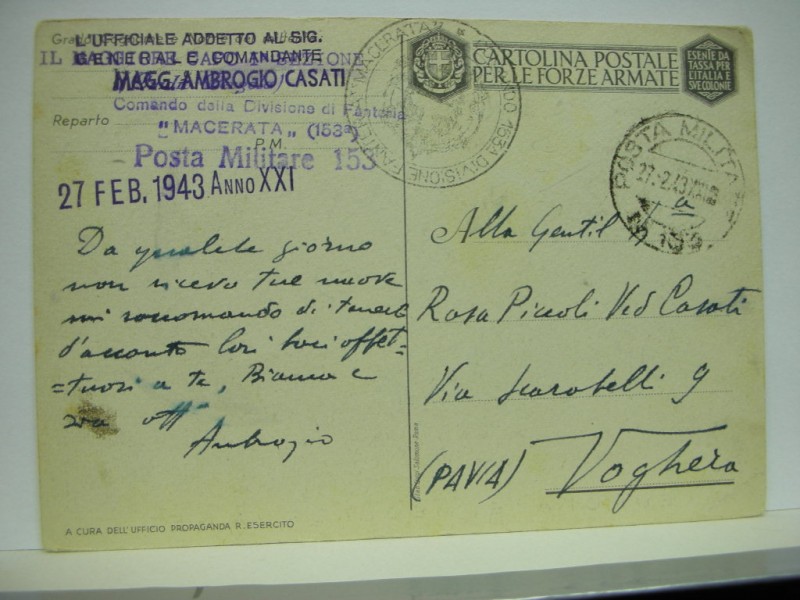 L'UFFICIALE ADDETTO AL SIG.
GENERALE COMANDANTE
IL MAGGIORE CAPO SEZIONE
MAGG. AMBROGIO CASATI
Comando della Divisione di Fanteria
"MACERATA" (153ª)
Reparto
P.M.
Posta Militare 153
27 FEB. 1943 ANNO XXI
Da qualche giorno
non ricevo tue nuove
mi raccomando di tenerti
d'acconto Cari baci affet-
-tuosi a te, Bianca e
Ambrogio
A CURA DELL'UFFICIO PROPAGANDA R. ESERCITO
"MACERATA"
153ª DIVISIONE FANTERIA
CARTOLINA POSTALE
PER LE FORZE ARMATE
ESENTE DA
TASSA PER
L'ITALIA E
SVE COLONIE
POSTA MILITARE
27.2.43
Alla Gentil
Rosa Piccoli Ved Casati
Via Scarabelli 9
(PAVIA) Voghera